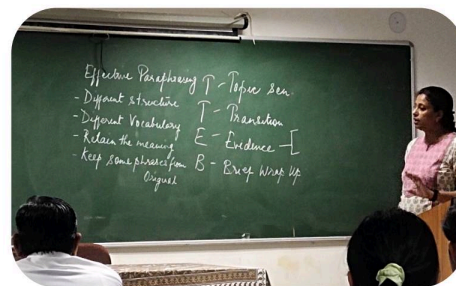 Effective Paraphrasing
- Different structure
- Different Vocabulary
- Retain the meaning
- Keep some phrases from
Original
T - Topic Sen.
T - Transition
E - Evidence - [
B - Brief Wrap Up